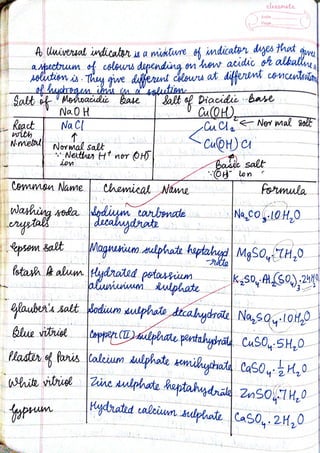 classmate
Date
Page
A Universal indicator is a mixture of indicator dyes that gives
a spectrum of colours depending on how acidic or alkaline a
solution is. They give different colours at different concentration
of hydrogen ions in a solution.
Salt of Monoacidic Base Salt of Diacidic Base
NaOH Cu(OH)₂
React with N-metal NaCl CuCl₂ ← Normal salt
Normal salt Cu(OH)Cl
∵ Neither H⁺ nor OH⁻ ion
Basic salt
∵ OH⁻ ion
Common Name Chemical Name Formula
Washing soda crystals Sodium carbonate decahydrate Na₂CO₃.10H₂O
Epsom salt Magnesium sulphate heptahyd-rate MgSO₄.7H₂O
Potash alum Hydrated potassium aluminium sulphate K₂SO₄.Al₂(SO₄)₃.24H₂O
Glauber's salt Sodium sulphate decahydrate Na₂SO₄.10H₂O
Blue vitriol Copper(II) sulphate pentahydrate CuSO₄.5H₂O
Plaster of Paris Calcium sulphate semihydrate CaSO₄.½H₂O
White vitriol Zinc sulphate heptahydrate ZnSO₄.7H₂O
Gypsum Hydrated calcium sulphate CaSO₄.2H₂O